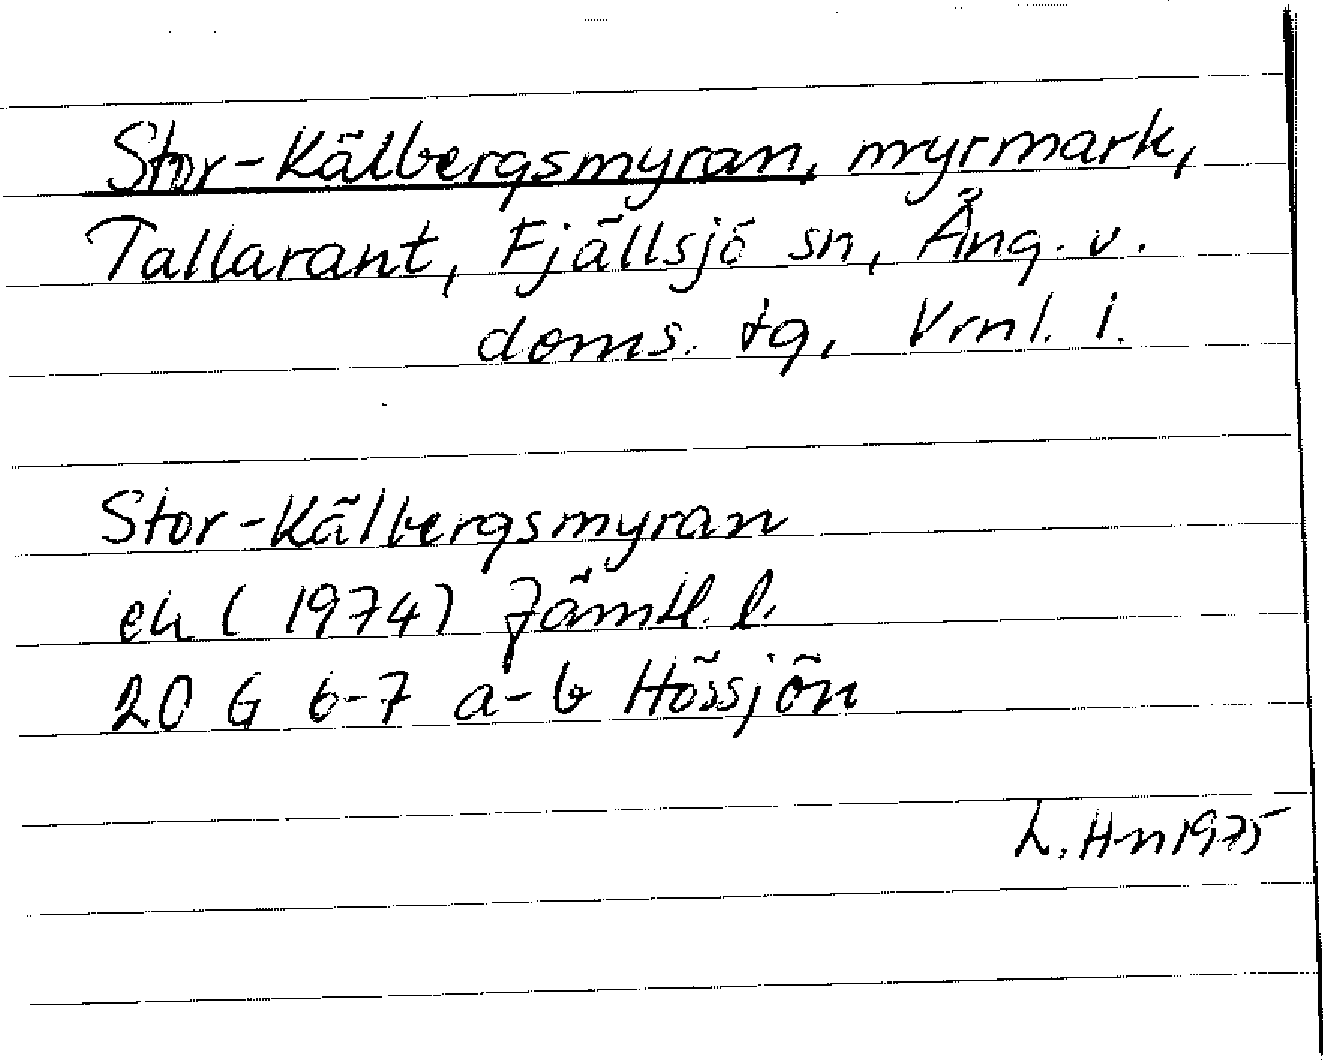 Stor-Kälbergsmyran, myrmark,
Tallarant, Fjällsjö sn, Ång. v.
doms. tg, Vrnl. l.
Stor-Kälbergsmyran
ek (1974) Jämtl. l.
20 G 6-7 a-b Hössjön
L. H-n 1975